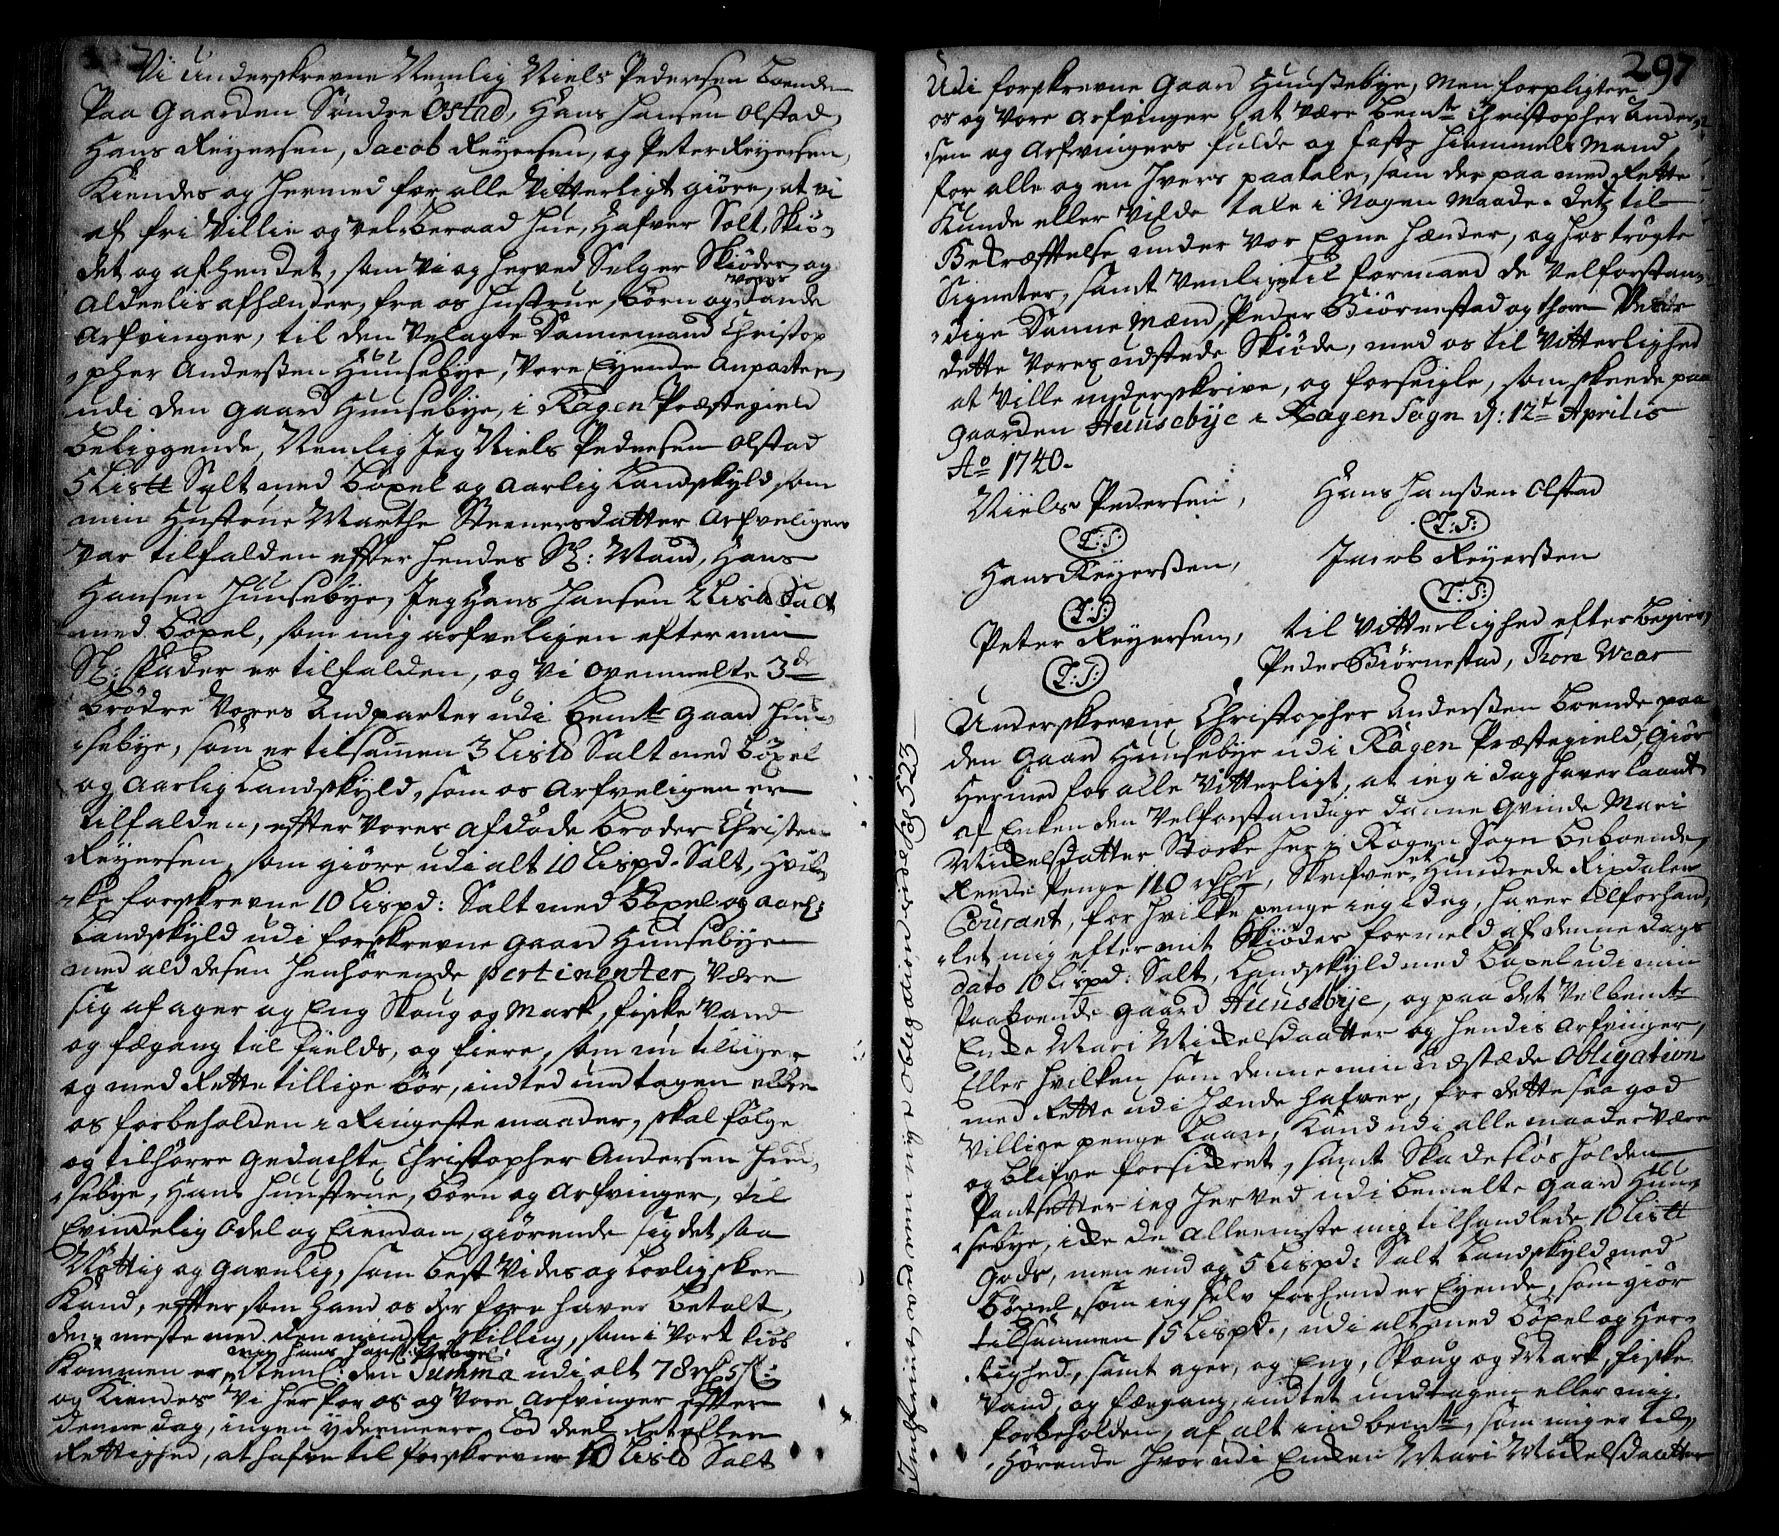 Vi underskrevne Nemlig Niels Pedersen boende
Paa Gaarden Søndre Østad, Hans Hansen Olstad,
Hans Reyersen, Jacob Reyersen, og Peter Reyersen,
Kiendes og hermed for alle Vitterligt giøre, at vi
af fri Villie og vel beraad hue, hafver Solt, Skiø-
det og afhendet, som vi og herved Selger Skiøder og
aldeelis afhænder, fra os hustrue, børn og vores
Arfvinger, til den Velagte Dannemand Christop
pher Anderßen Huusebye, Vore Eyende Anparter,
udi den gaard Hunsebye, i Ragen Præstegield
beliggende, Nemlig Jeg Niels Pedersen Olstad
5 List Salt med böxel og aarlig Landskyld som
min Hustrue Marthe Steenersdatter Arfveligen
var tilfalden effter hendes Sl: Mand, Hans
Hansen Huusebye, Jeg Hans Hansen 2 Lisd Salt
med böxel, som mig arfveligen efter min
Sl: fader er tilfalden, og vi ovenmelte 3de
brødre Vores Andparter udi bemte gaard Huu-
sebye, som er tilsamen 3 Lisd Salt med böxel
og Aarlig Landskyld, som os Arfveligen er
tilfalden, effter Vores afdøde broder Christen
Reyersen, som giøre udi alt 10 Lispd. Salt, hvil-
ke forskrevne 10 Lispd: Salt med böxel og aarl:
Landskyld udi forskrevne gaard Hunsebye
med ald desen henhörende pertinenter, være
sig af ager og Eng Skoug og Mark, fiske Vand
og fægang til fields, og fiere, som nu tilliger
og med Rette tillige bör, indted undtagen eller
os forbeholden i Ringeste maader, skal fölge
og tilhörre Gedachte Christopher Andersen Huu-
sebye, Hans Huustrue, börn og Arfvinger, til
Evindelig Odel og Eiendom, giörende sig det saa
Nöttig og gavnlig, som best vides og Lovlig skee
Kand, effter som hand os der fore haver betalt
den meste med den mindste skilling, som i vort kiöb
Kommen er, Neml: den Summa udi alt 78 rd
og Kiendes Vi her for os og Vore Arfvinger effter
denne dag, ingen ydermeere Lod deel Ret eller
Rettighed, at hafve til forskrevne 10 Lisd Salt
297
Udi forskrevne Gaard Hunßebye, Men forpligter
os og Vore Arfvinger at være bemte Christopher Ander-
sen og Arfvingers fulde og faste hiemmels Mand
for alle og en hvers paatale, som der paa med Rette
Kunde eller Vilde tale i Nogen Maade. Detz til
Bekræfftelse under Vor Egne hænder, og hoströgte
Signeter, samt Venligen til formaaed de Velforstan-
dige Danne Mænd, Peder Biørnestad og Thore Wear
dette Vores udstede Skiöde, med os til Vitterlighed
at Ville underskrive, og forseigle, som skeede paa
gaarden Hunsebye i Ragen Sogn d: 12t Aprilis
Ao 1740.
Niels Pedersen, Hans Hanßen Olstad
(L:S:) (L:S:)
Hans Reyerßen, Jacob Reyerßen
(L:S:) (L:S:)
Peter Reyersen, til Vitterlighed efter begier,
(L:S:) Peder Biørnestad, Thore Wear
Underskrevne Christopher Anderßen boende paa
den Gaard Hunsebye udi Ragen Præstegield, Giör
Hermed for alle Vitterligt, at ieg i dag haver laant
af Enken den Velforstandige Danne Qvinde Mari
Mickelsdatter Stocke her i Ragen Sogn beboende,
Reede Penge 110 rd, Skrifver et Hundrede Rixdaler
Courant, for hvilke penge ieg i dag, haver tilforhand-
let mig efter mit Skiödes formeld af denne dags
dato 10 Lispd: Salt, Landskyld med böxel udi min
Paaboende gaard Hunsebye, og paa det Velbemte
Enke Mari Mickelsdaatter og hendis Arfvinger,
Eller hvilken som denne min udstæde Obligation
med Rette udi hænde hafver, for dette saa god
Villige penge Laan, Kand udi alle maader være
og blifve forsickret, samt Skadeslös holden
Pantsetter ieg herved udi bemelte gaard Huu-
sebye, icke de alleeniste mig tilhandlede 10 List
Gods, men end og 5 Lispd: Salt Landskyld med
böxel, som ieg selv forhend er Eyende, som giör
tilsammen 15 Lispd., udi alt med böxel og her-
lighed, samt ager, og Eng, Skoug og Mark, fiske
Vand, og fægang, indtet undtagen eller mig
forbeholden, af alt indbemte, som mig er til-
hörende hvor udi Encken Mari Mickelsdaatter